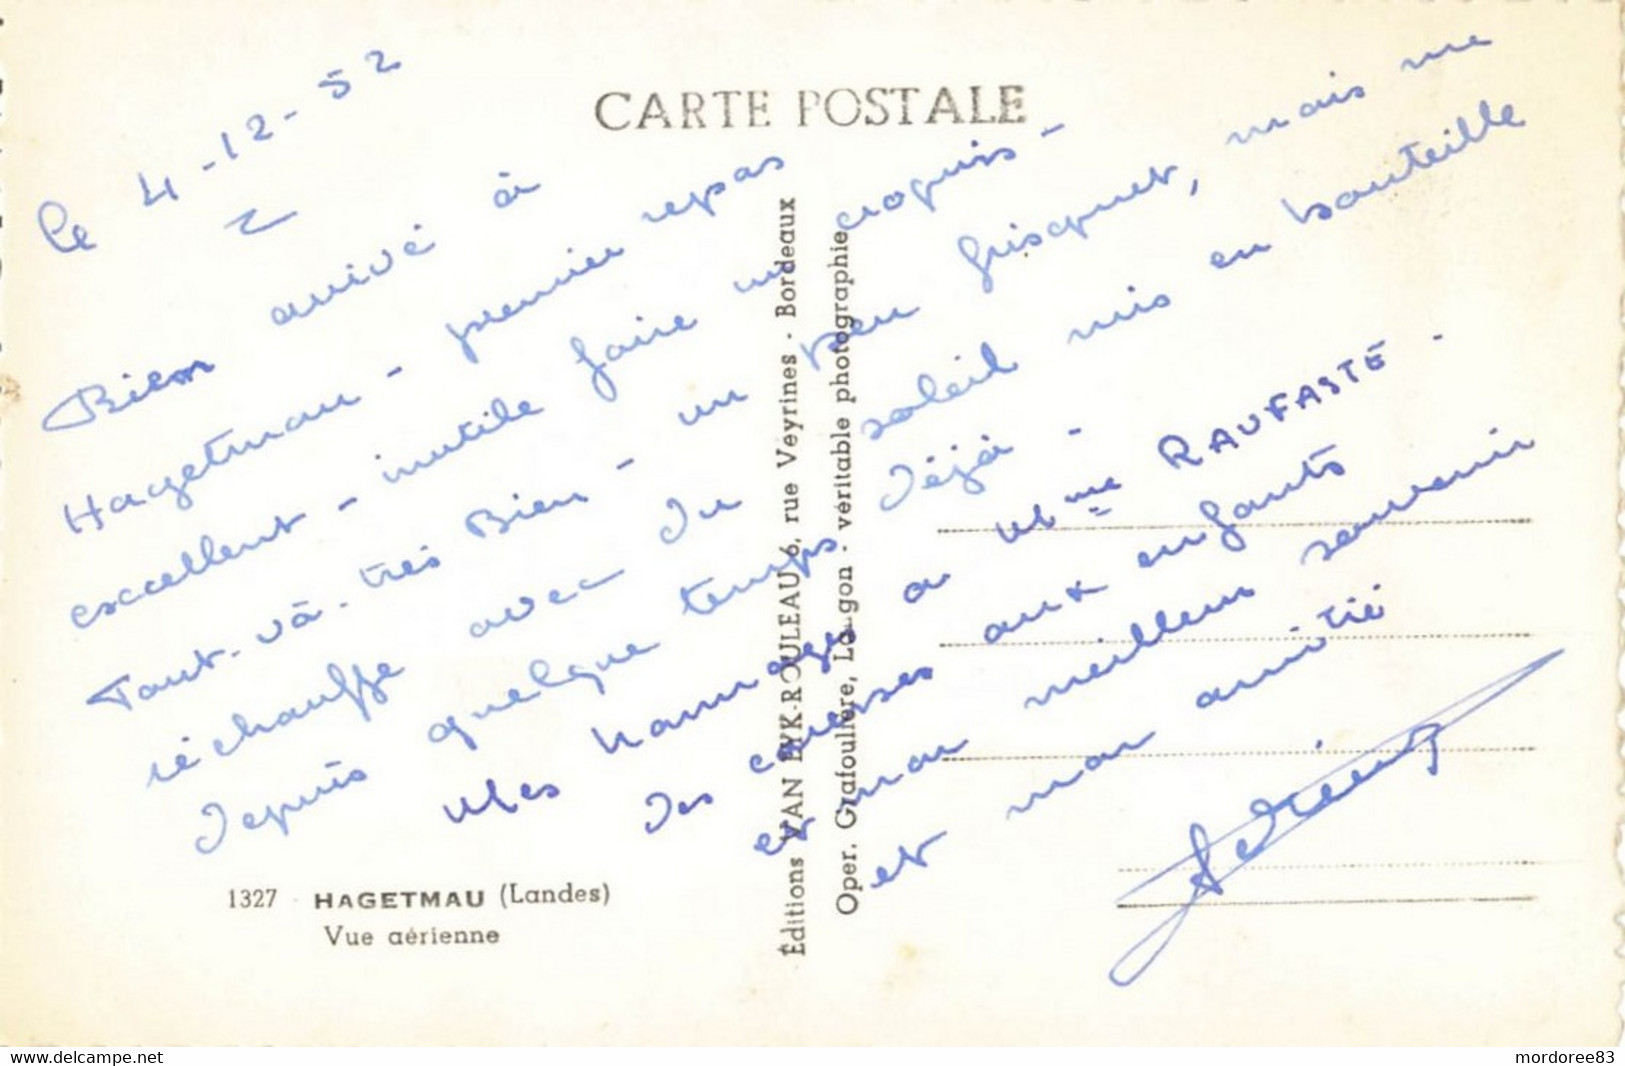 CARTE POSTALE
le 4-12-52
Bien arrivé à
Hagetmau - premier repas
excellent - inutile faire un croquis -
Tout-vä-très Bien - un peu frisquet, mais me
réchauffe avec du soleil mis en bouteille
depuis quelque temps déjà -
Mes hommages a Mme RAUFASTÉ -
des caresses aux enfants
et mon meilleur souvenir
et mon amitié
1327 HAGETMAU (Landes)
Vue aérienne
Éditions VAN EYK-ROULEAU 6, rue Veyrines - Bordeaux
Oper. Grafouliere, Lougon - véritable photographie
delcampe.net
mordoree83